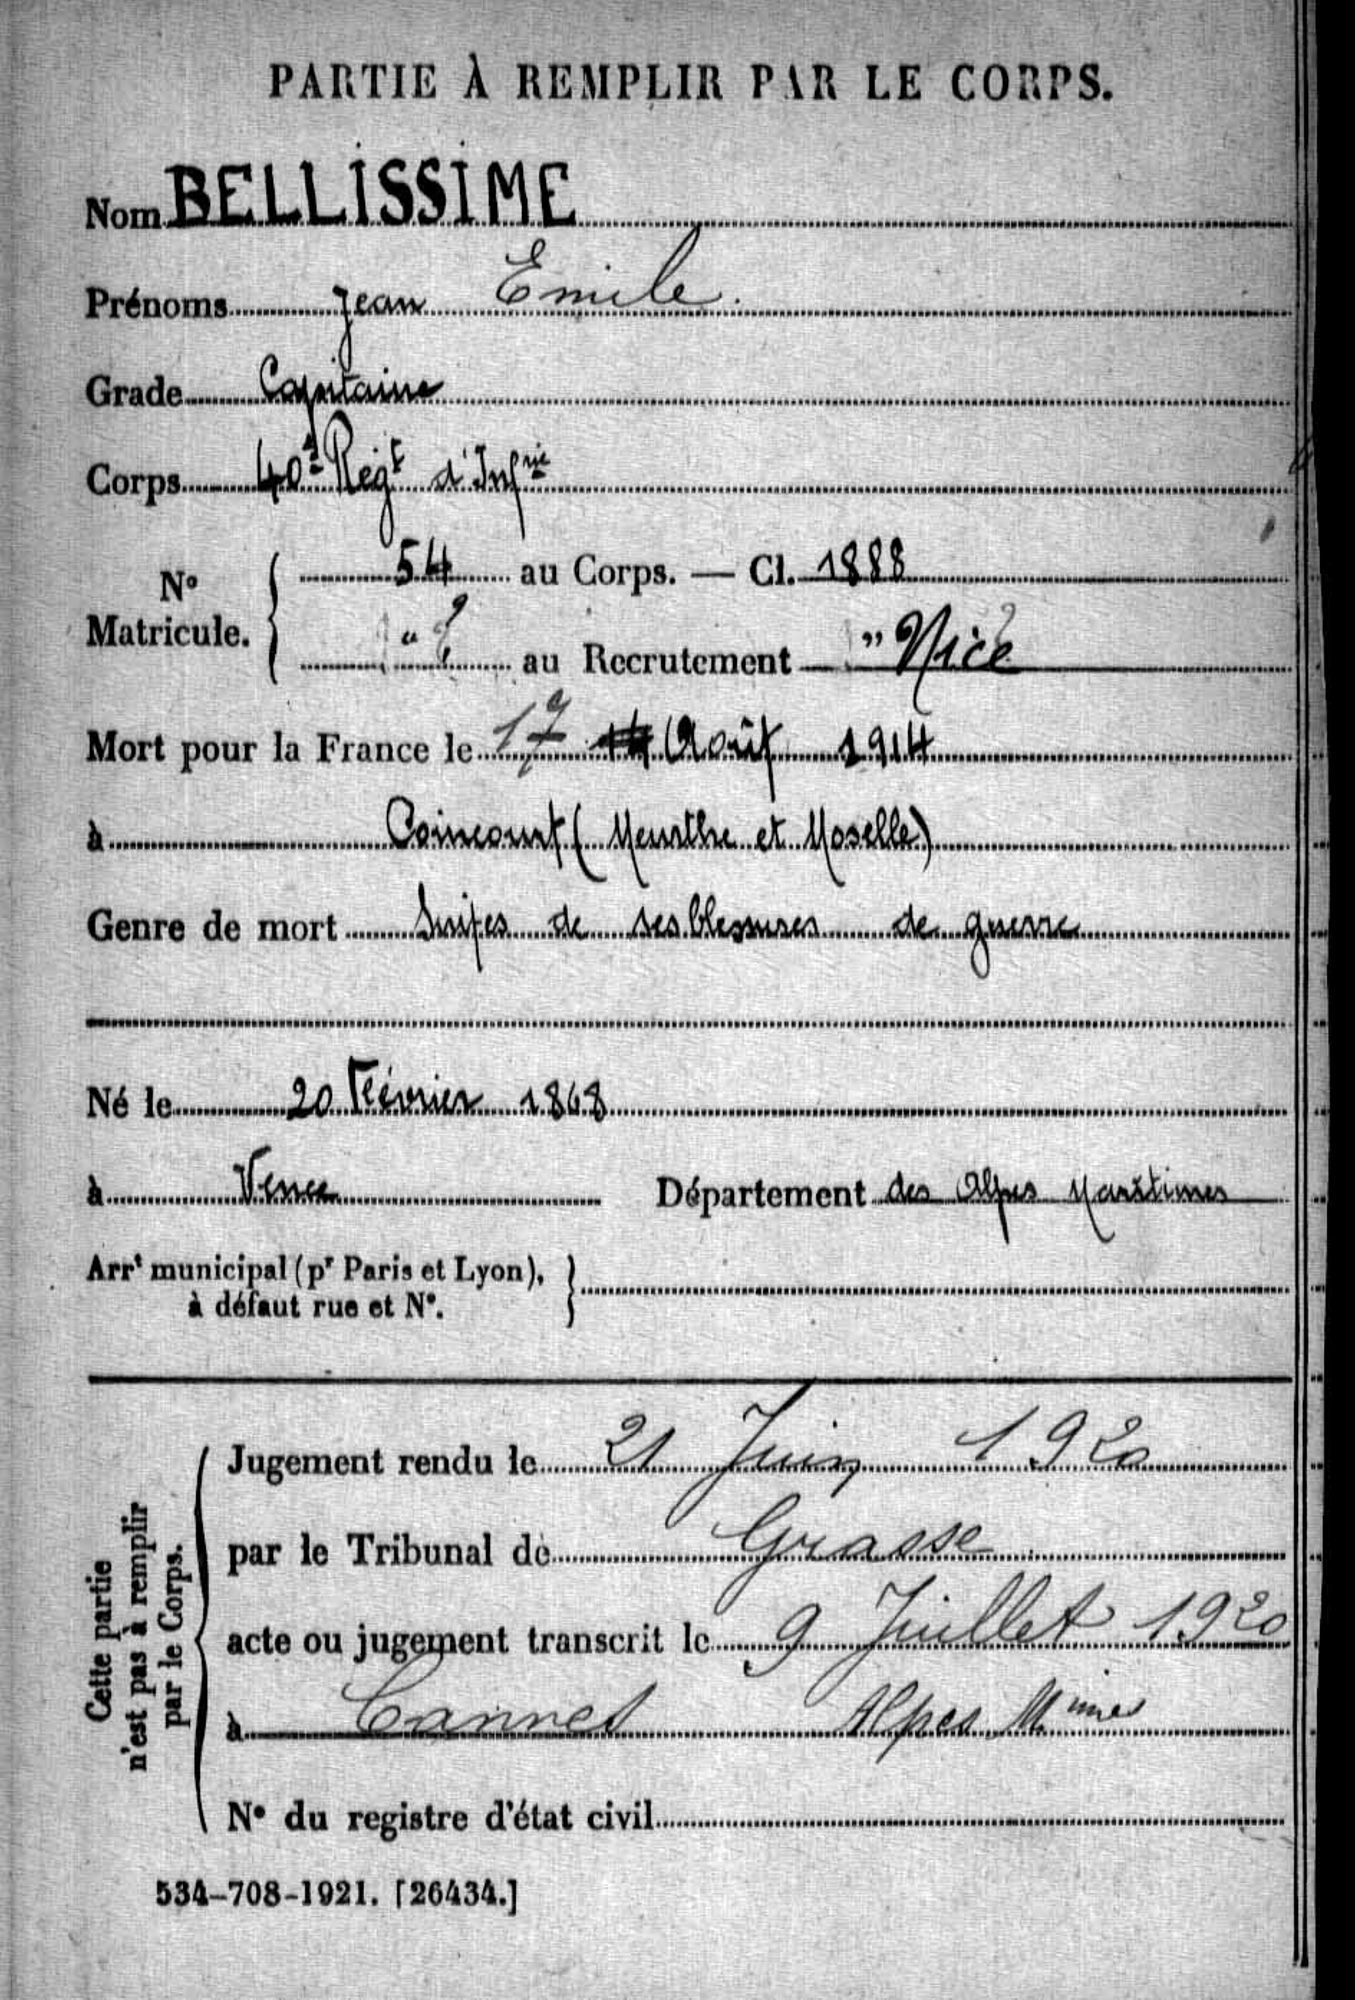 PARTIE À REMPLIR PAR LE CORPS.
Nom BELLISSIME
Prénoms Jean Emile.
Grade Capitaine
Corps 40e Régt d'Infrie
N° Matricule. 54 au Corps. — Cl. 1888
" au Recrutement " Nice
Mort pour la France le 17 14 Août 1914
à Coincourt (Meurthe et Moselle)
Genre de mort Suites de ses blessures de guerre
Né le 20 Février 1868
à Vence Département des Alpes Maritimes
Arrt municipal (pr Paris et Lyon),
à défaut rue et N°.
Cette partie n'est pas à remplir par le Corps.
Jugement rendu le 21 Juin 1920
par le Tribunal de Grasse
acte ou jugement transcrit le 9 Juillet 1920
à Cannes Alpes Mmes
N° du registre d'état civil
534-708-1921. [26434.]